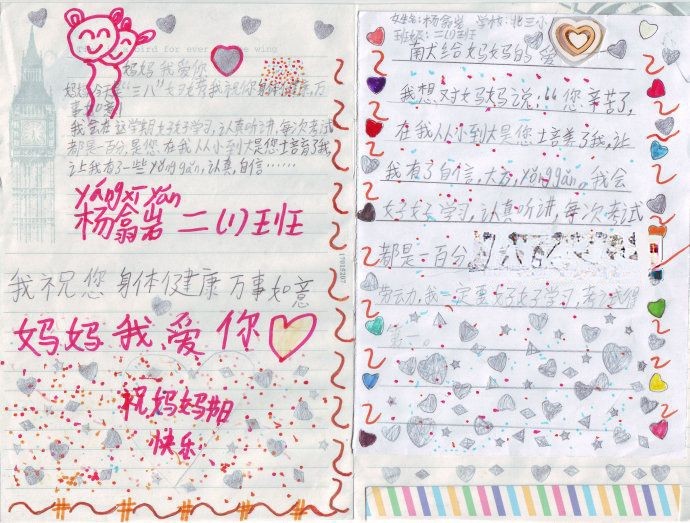 bird for ever the wing
妈妈我爱你
妈妈今天是"三八"妇女节我祝你身体健康,万
事如意!
我会在这学期好好学习,认真听讲,每次考试
都是一百分,是您在我从小到大是您士音育了我,
让我有了一些yǒnggǎn,认真,自信……
yángxīyán
杨翕岩 二(1)班
17015207
我祝您身体健康万事如意
妈妈我爱你
祝妈妈节日
快乐
姓名:杨翕岩 学校:北三小
班级:二(1)班
献给妈妈的爱
我想对妈妈说:"您辛苦了,
在我从小到大是您士培养了我,让
我有了自信,大方,yǒnggǎn。我会
好好学习,认真听讲,每次考试
都是一百分。
劳动力,我一定要好好学习,考试得
第一。